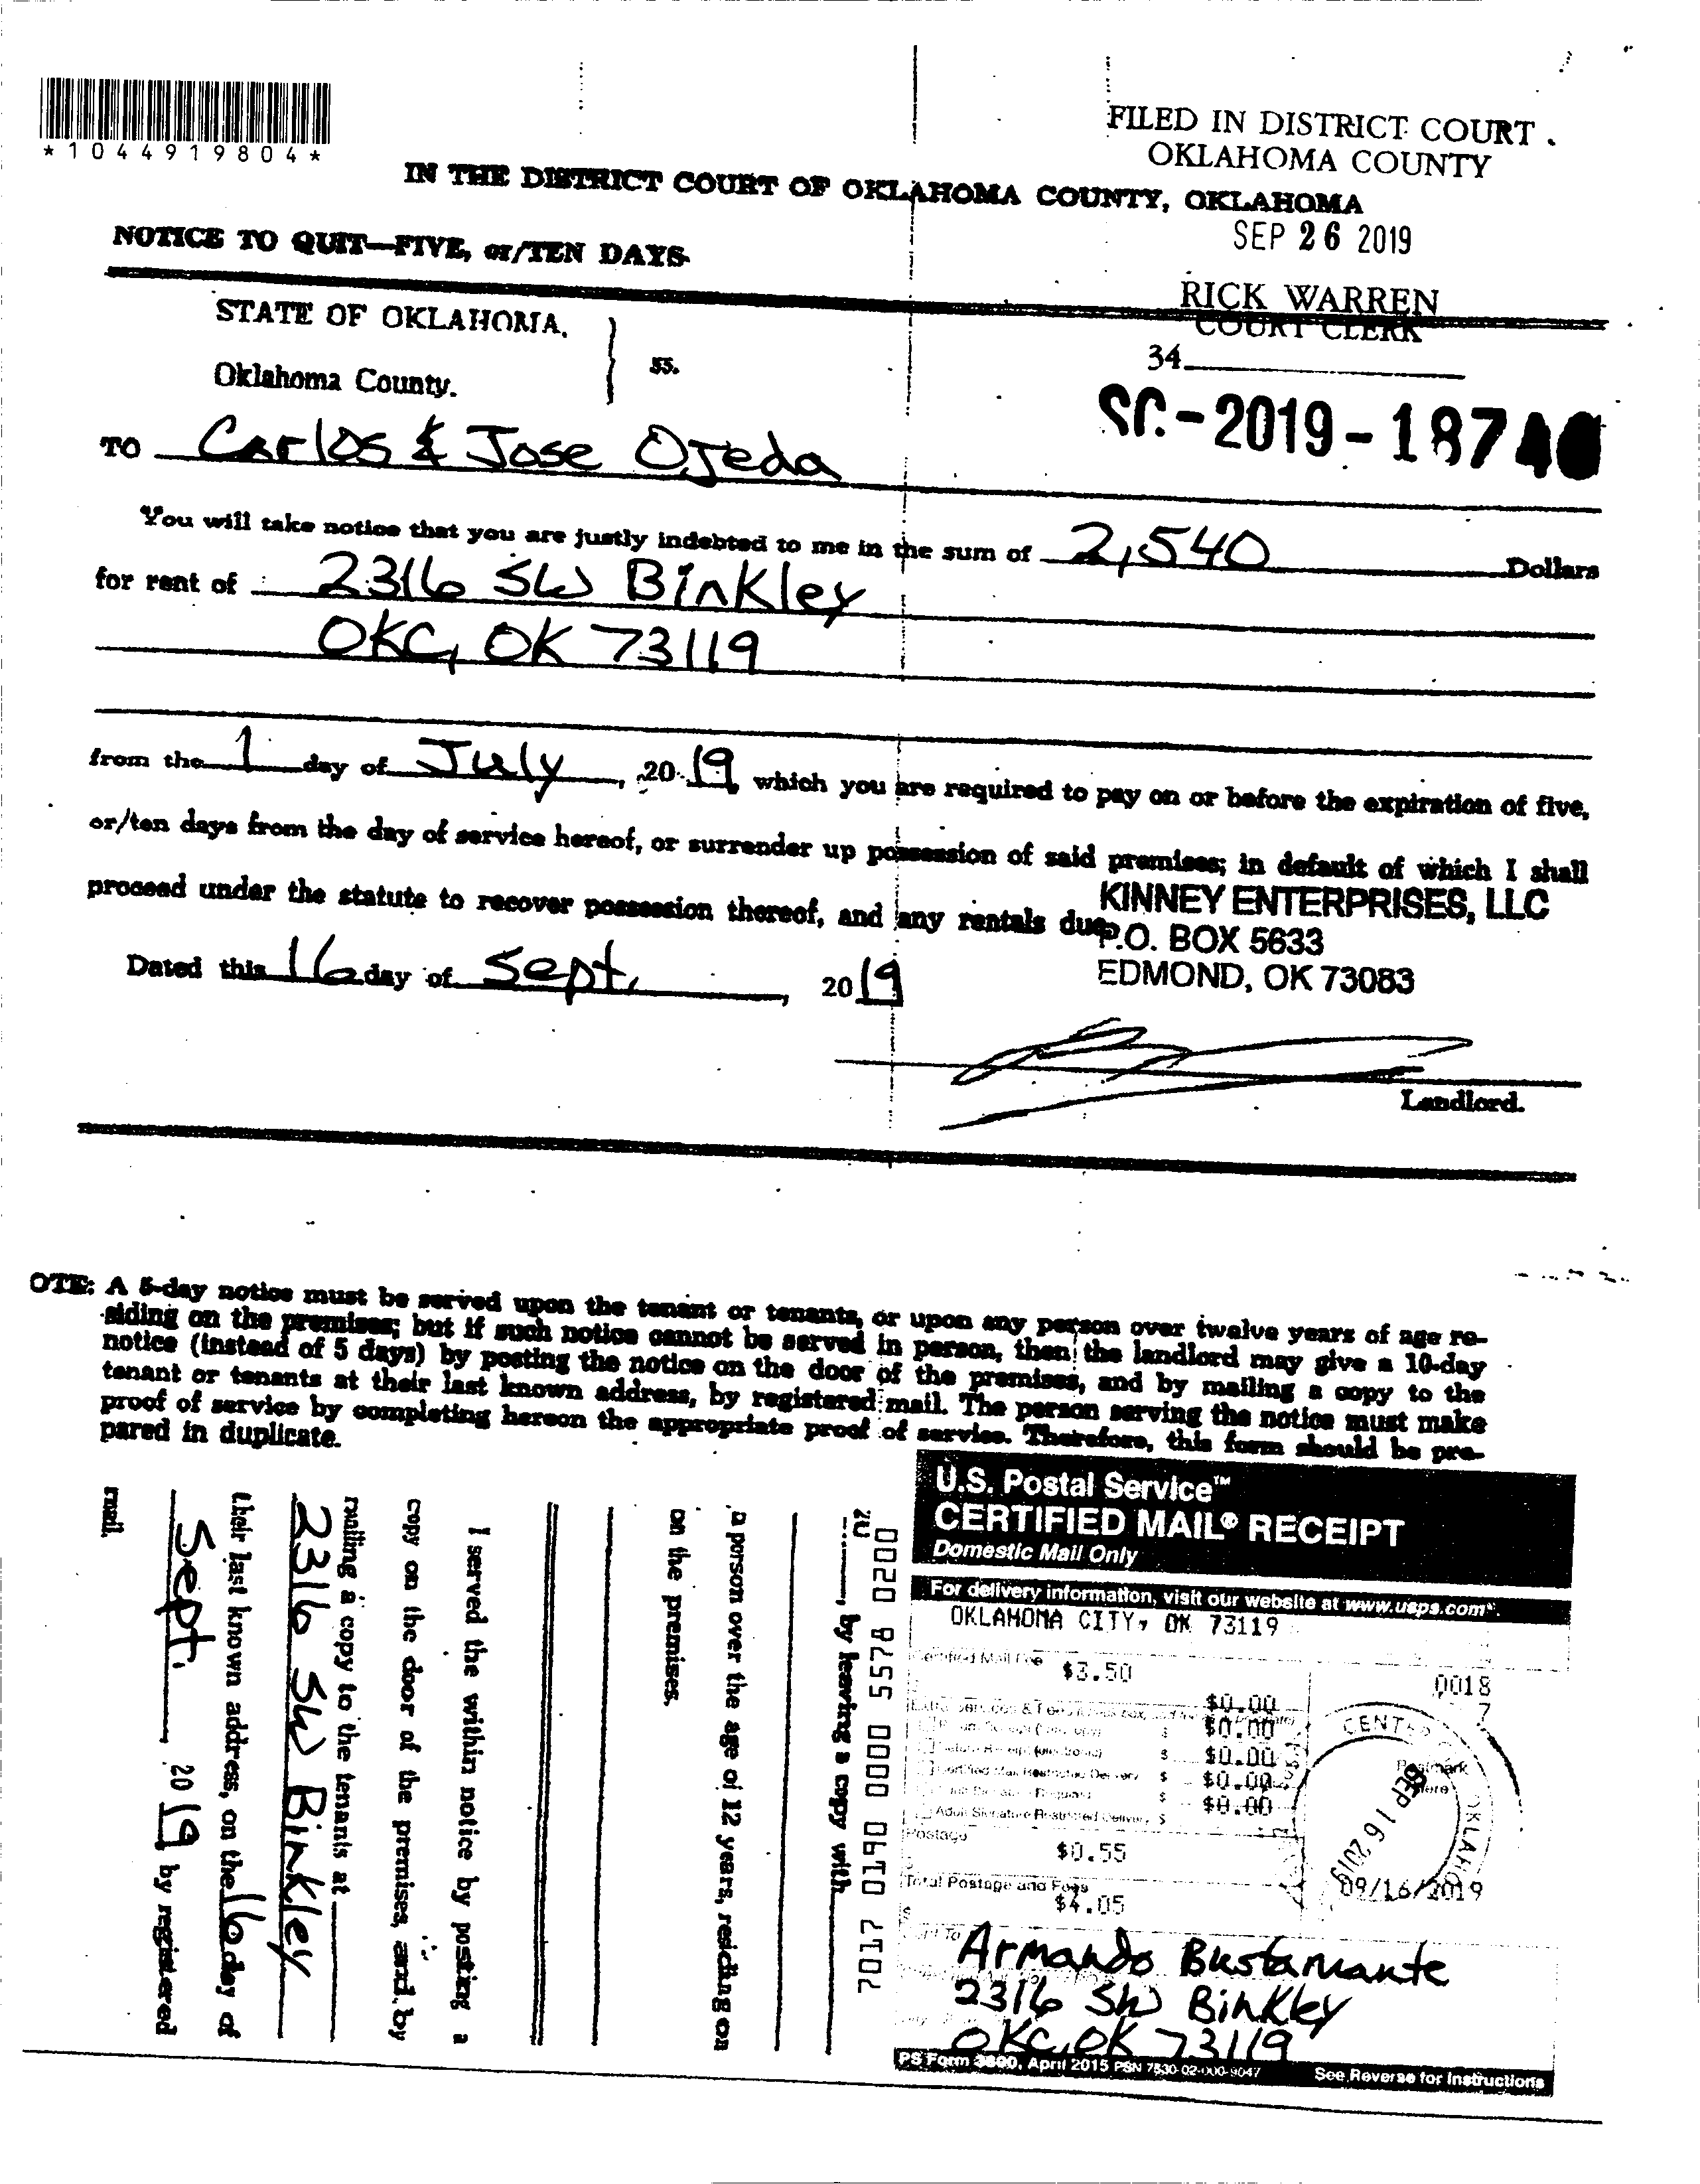 *1044919804*
FILED IN DISTRICT COURT
OKLAHOMA COUNTY
IN THE DISTRICT COURT OF OKLAHOMA COUNTY, OKLAHOMA
SEP 26 2019
NOTICE TO QUIT—FIVE, or/TEN DAYS
RICK WARREN
COURT CLERK
34
STATE OF OKLAHOMA,
Oklahoma County.
ss.
SC-2019-1874
TO Carlos & Jose Ojeda
You will take notice that you are justly indebted to me in the sum of 2,540 Dollars
for rent of 2316 SW Binkley
OKC, OK 73119
from the 1 day of July, 2019, which you are required to pay on or before the expiration of five,
or/ten days from the day of service hereof, or surrender up possession of said premises; in default of which I shall
proceed under the statute to recover possession thereof, and any rentals due.
KINNEY ENTERPRISES, LLC
P.O. BOX 5633
EDMOND, OK 73083
Dated this 16 day of Sept., 2019
Landlord.
OTE: A 5-day notice must be served upon the tenant or tenants, or upon any person over twelve years of age re-
siding on the premises; but if such notice cannot be served in person, then the landlord may give a 10-day
notice (instead of 5 days) by posting the notice on the door of the premises, and by mailing a copy to the
tenant or tenants at their last known address, by registered mail. The person serving the notice must make
proof of service by completing hereon the appropriate proof of service. Therefore, this form should be pre-
pared in duplicate.
20
, by leaving a copy with
a person over the age of 12 years, residing on
on the premises.
I served the within notice by posting a
copy on the door of the premises, and by
mailing a copy to the tenants at
2316 SW Binkley
their last known address, on the 16 day of
Sept. 2019 by registered
mail.
7017 0190 0000 5578 0200
U.S. Postal Service™
CERTIFIED MAIL® RECEIPT
Domestic Mail Only
For delivery information, visit our website at www.usps.com®.
OKLAHOMA CITY, OK 73119
Certified Mail Fee
$3.50
0018
7
$0.00
$0.00
$0.00
$0.00
$0.00
Postmark
Here
SEP 16 2019
Postage
$0.55
Total Postage and Fees
$4.05
09/16/2019
Sent To
Armando Bustamante
2316 SW Binkley
OKC, OK 73119
PS Form 3800, April 2015 PSN 7530-02-000-9047 See Reverse for Instructions